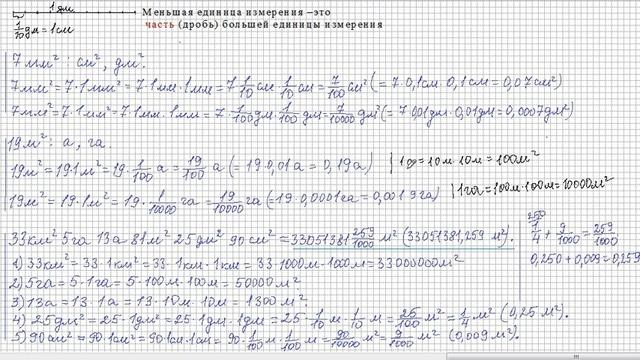 1 дм
Меньшая единица измерения –это
1/10 дм = 1 см
часть (дробь) большей единицы измерения
7 мм² : см², дм².
7мм² = 7·1мм² = 7·1мм·1мм = 7·1/10 см·1/10 см = 7/100 см² (= 7·0,1см·0,1см = 0,07см²)
7мм² = 7·1мм² = 7·1мм·1мм = 7·1/100 дм·1/100 дм = 7/10000 дм² (= 7·0,01дм·0,01дм = 0,0007дм²)
19м² : а, га.
19м² = 19·1м² = 19·1/100 а = 19/100 а (= 19·0,01а = 0,19а) | 1а = 10м·10м = 100м²
19м² = 19·1м² = 19·1/10000 га = 19/10000 га (= 19·0,0001га = 0,0019га) | 1га = 100м·100м = 10000м²
33км² 5га 13а 81м² 25дм² 90см² = 33051381 259/1000 м² (33051381,259 м²).
250
1/4 + 9/1000 = 259/1000
0,250 + 0,009 = 0,259
1) 33км² = 33·1км² = 33·1км·1км = 33·1000м·1000м = 33000000м²
2) 5га = 5·1га = 5·100м·100м = 50000м²
3) 13а = 13·1а = 13·10м·10м = 1300м²
4) 25дм² = 25·1дм² = 25·1дм·1дм = 25·1/10 м·1/10 м = 25/100 м² = 1/4 м² (0,25 м²).
5) 90см² = 90·1см² = 90·1см·1см = 90·1/100 м·1/100 м = 90/10000 м² = 9/1000 м² (0,009 м²).